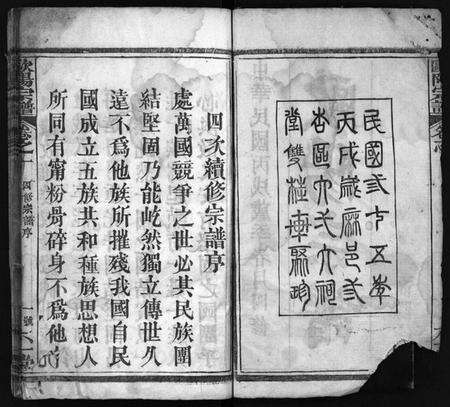 民國弎十五年
丙戌歲麻邑
杏區六弍大祠
堂雙桂
四次續修宗譜序
處萬國競爭之世必其民族團
結堅固乃能屹然獨立傳世久
遠不爲他族所摧殘我國自民
國成立五族共和種族思想人
所同有甯粉骨碎身不爲他
歐陽宗譜 卷之一 四修宗譜序 一號